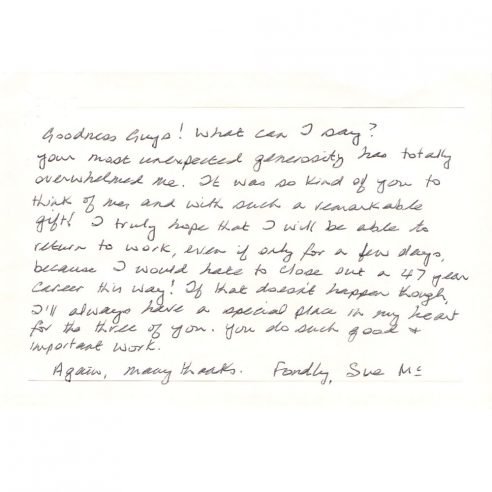 Goodness Guys! What can I say?
your most unexpected generosity has totally
overwhelmed me. It was so kind of you to
think of me, and with such a remarkable
gift! I truly hope that I will be able to
return to work, even if only for a few days,
because I would hate to close out a 47 year
career this way! If that doesn't happen though,
I'll always have a special place in my heart
for the three of you. You do such good +
important work.
Again, many thanks. Fondly, Sue Mc